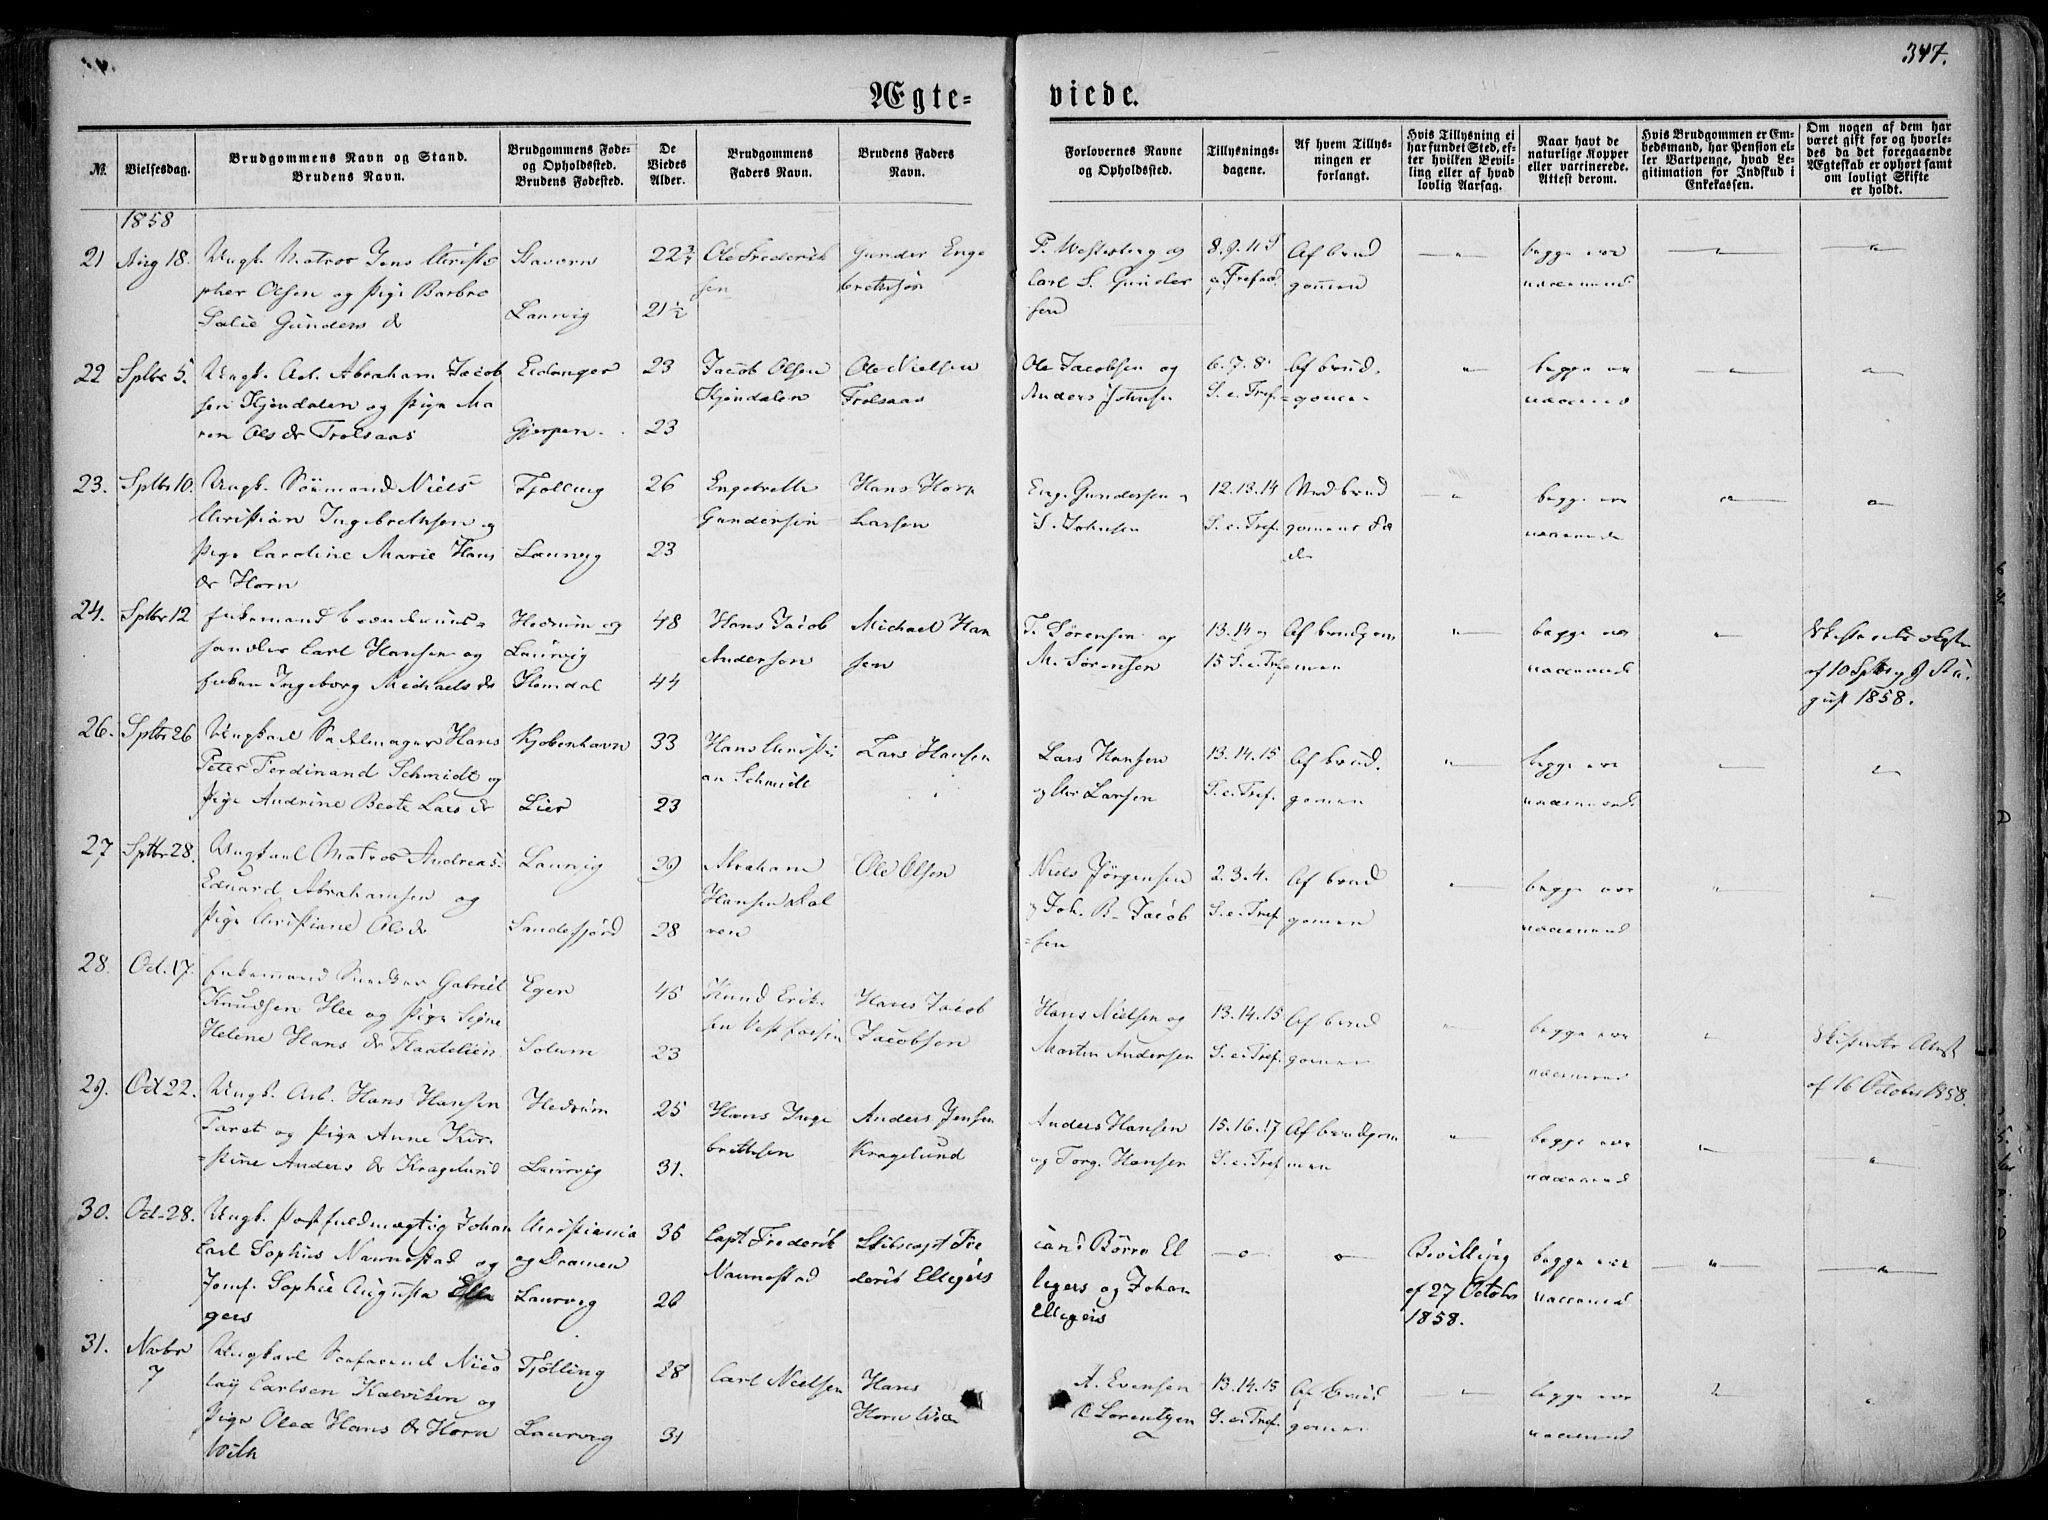 347.
Ægte-
viede.
No.
Vielsesdag.
Brudgommens Navn og Stand.
Brudens Navn.
Brudgommens Føde-
og Opholdssted.
Brudens Fødested.
De
Viedes
Alder.
Brudgommens
Faders Navn.
Brudens Faders
Navn.
Forlovernes Navne
og Opholdssted.
Tillysnings-
dagene.
Af hvem Tillys-
ningen er
forlangt.
Hvis Tillysning ei
har fundet Sted, ef-
ter hvilken Bevil-
ling eller af hvad
lovlig Aarsag.
Naar havt de
naturlige Kopper
eller vaccinerede.
Attest derom.
Hvis Brudgommen er Em-
bedsmand, har Pension el-
ler Vartpenge, hvad Le-
gitimation for Indskud i
Enkekassen.
Om nogen af dem har
været gift før og hvorle-
des da det foregaaende
Ægteskab er ophørt samt
om lovligt Skifte
er holdt.
1858
21 Aug 18. Ungk. Matros Jens Christo
pher Olsen og Pige Barbro
Gunders dr
Stavern
Laurvig
22 3/4
21 1/2
Ole Frederik
sen
Gunder Enge
brethsen
P. Westerberg og
Carl S. Gunder
sen
8. 9. 11 S
e Trefod.
Af brud
gomen
begge ere
vaccinered
22 Sptbr 5. Ungk. Arb. Abraham Jacob
sen Kjøndalen og Pige Ma
ren Ols dr Trolsaas
Eidanger
Gjerpen.
23
23
Jacob Olsen
Kjøndalen
Ole Nielsen
Trolsaas
Ole Jacobsen og
Anders Johnsen
6. 7. 8.
S. e. Tref.
Af brud.
gomen
begge ere
23. Sptbr 10. Ungk. Sømand Niels
Christian Ingebrethsen og
Pige Caroline Marie Hans
dr Horn
Tjølling
Laurvig
26
23
Engebreth
Gundersen
Hans Horn
Larsen
Eng. Gundersen
S. Johnsen
12. 13. 14
S. e. Tref.
Ved brud
gomens
begge ere
24. Sptbr 12 Enkemand
handler Carl Hansen og
Enken Ingeborg Michaels dr
Hedrum og
Laurvig
48
44
Hans Jacob
Andersen
Michael Han
sen
T. Sørensen og
M. Sørensen
13. 14 og
15 S. e. Tref
Af brudgom
men
begge ere
vaccinerede
af 10 Sptbr og 9 Au-
gust 1858.
26. Sptbr 26 Ungkarl Sadelmager Hans
Peter Ferdinand Schmidt og
Pige Andrine Beate Lars dr
Kjøbenhavn
Lier
33
23
Hans Christi
an Schmidt
Lars Hansen
Lars Hansen
og Chr Larsen
13. 14. 15
S. e. Tref.
Af brud.
gomen
begge ere
27 Sptbr 28. Ungkarl Matros Andreas
Eduard Abrahamsen og
Pige Christiane Ols dr
Laurvig
Sandefjord
29
28
Abraham
Hansen
Ole Olsen
Niels Jørgensen
og Joh. B. Jacob
sen
2. 3. 4.
S. e. Tref.
Af brud
gomen
begge ere
28. Oct. 17. Enkemand Snedker Gabriel
Knudsen Hee og Pige Signe
Helene Hans dr Flaatelien
Eger
Solum
45
23
Knud Erik
sen Vestfossen
Hans Jacob
Jacobsen
Hans Nielsen og
Martin Andersen
13. 14. 15
S. e. Tref.
Af brud
gomen
begge ere
Skifteretts Attest
af 16 October 1858.
29. Oct 22. Ungk. Arb. Hans Hansen
Faret og Pige Anne Kir-
stine Anders dr Kragelund
Hedrum
Laurvig
25
31.
Hans Inge
brethsen
Anders Jensen
Kragelund
Anders Hansen
og Torg. Hansen
15. 16. 17
S. e. Tref
Af brudgom
men
begge ere
30. Oct. 28. Ungk. Postfuldmægtig Johan
Carl Sophus Nannestad og
Jomf. Sophie Augusta Elle
gers
Christiania
og Dramen
Laurvig
35
26
Capt Frederik
Nannestad
Skibscapt Fre
derik Ellegers
cand Børre El
legers og Johan
Ellegers
Bevilling
af 27 Octobr
1858.
begge ere
31. Novbr
7
Ungkarl Søefarend Nico
lay Carlsen Kalviken og
Pige Olea Hans dr Horn
Wiik
Tjølling
Laurvig
28
31
Carl Nielsen
Hans
Horn Wiik
A. Evensen
C Lorentzen
13. 14. 15
S. e. Tref.
Af brud
gomen
begge ere